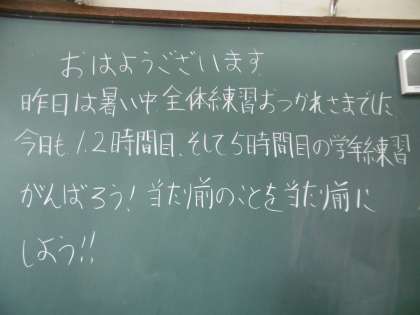 おはようございます
昨日は暑い中、全体練習おつかれさまでした
今日も1.2時間目、そして5時間目の学年練習
がんばろう！当たり前のことを当たり前に
しよう!!